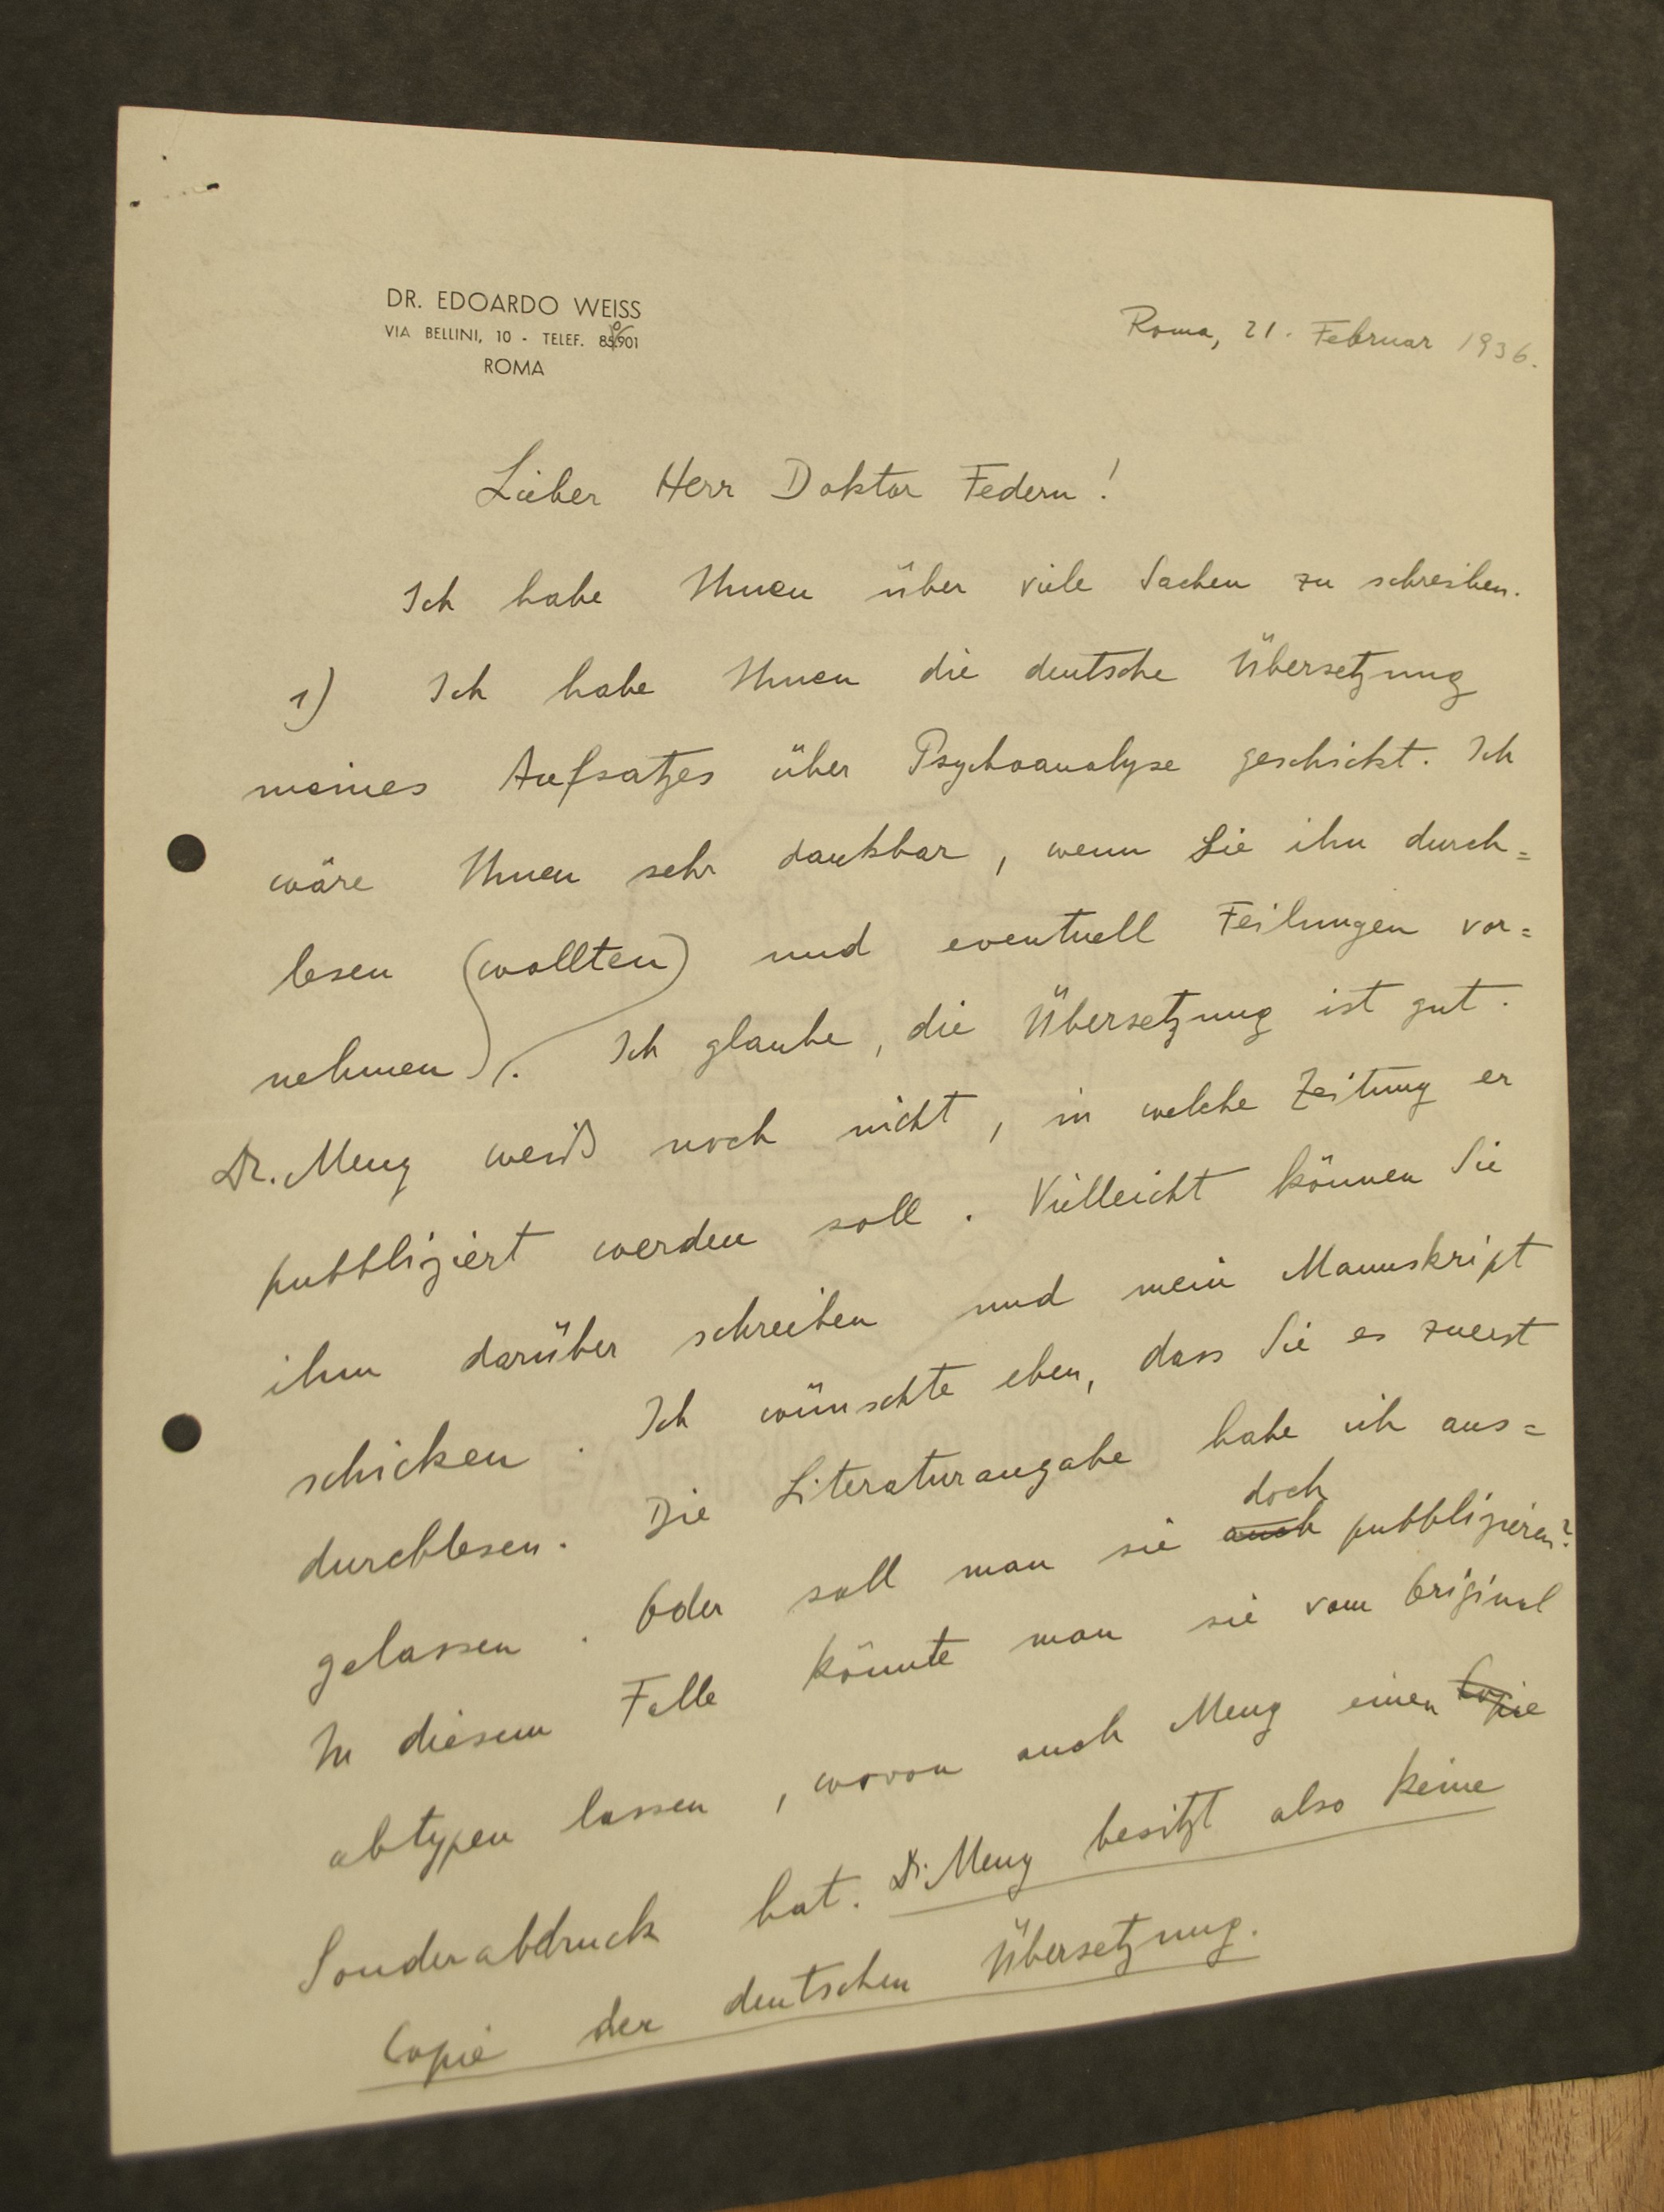 DR. EDOARDO WEISS
VIA BELLINI, 10 - TELEF.
ROMA
Roma, 21. Februar 1936.
Lieber Herr Doktor Federn!
Ich habe Ihnen über viele Sachen zu schreiben.
1) Ich habe Ihnen die deutsche Übersetzung
meines Aufsatzes über Psychoanalyse geschickt. Ich
wäre Ihnen sehr dankbar, wenn Sie ihn durch=
lesen (wollten) und eventuell Feilungen vor=
nehmen. Ich glaube, die Übersetzung ist gut.
Dr. Meng weiß noch nicht, in welche Zeitung er
pubbliziert werden soll. Vielleicht können Sie
ihm darüber schreiben und mein Manuskript
schicken. Ich wünschte eben, dass Sie es zuerst
durchlesen. Die Literaturangabe habe ich aus=
gelassen. Oder soll man sie auch doch pubblizieren?
In diesem Falle könnte man sie vom Original
abtypen lassen, wovon auch Meng einen Copie
Sonderabdruck hat. Dr. Meng besitzt also keine
Copie der deutschen Übersetzung.